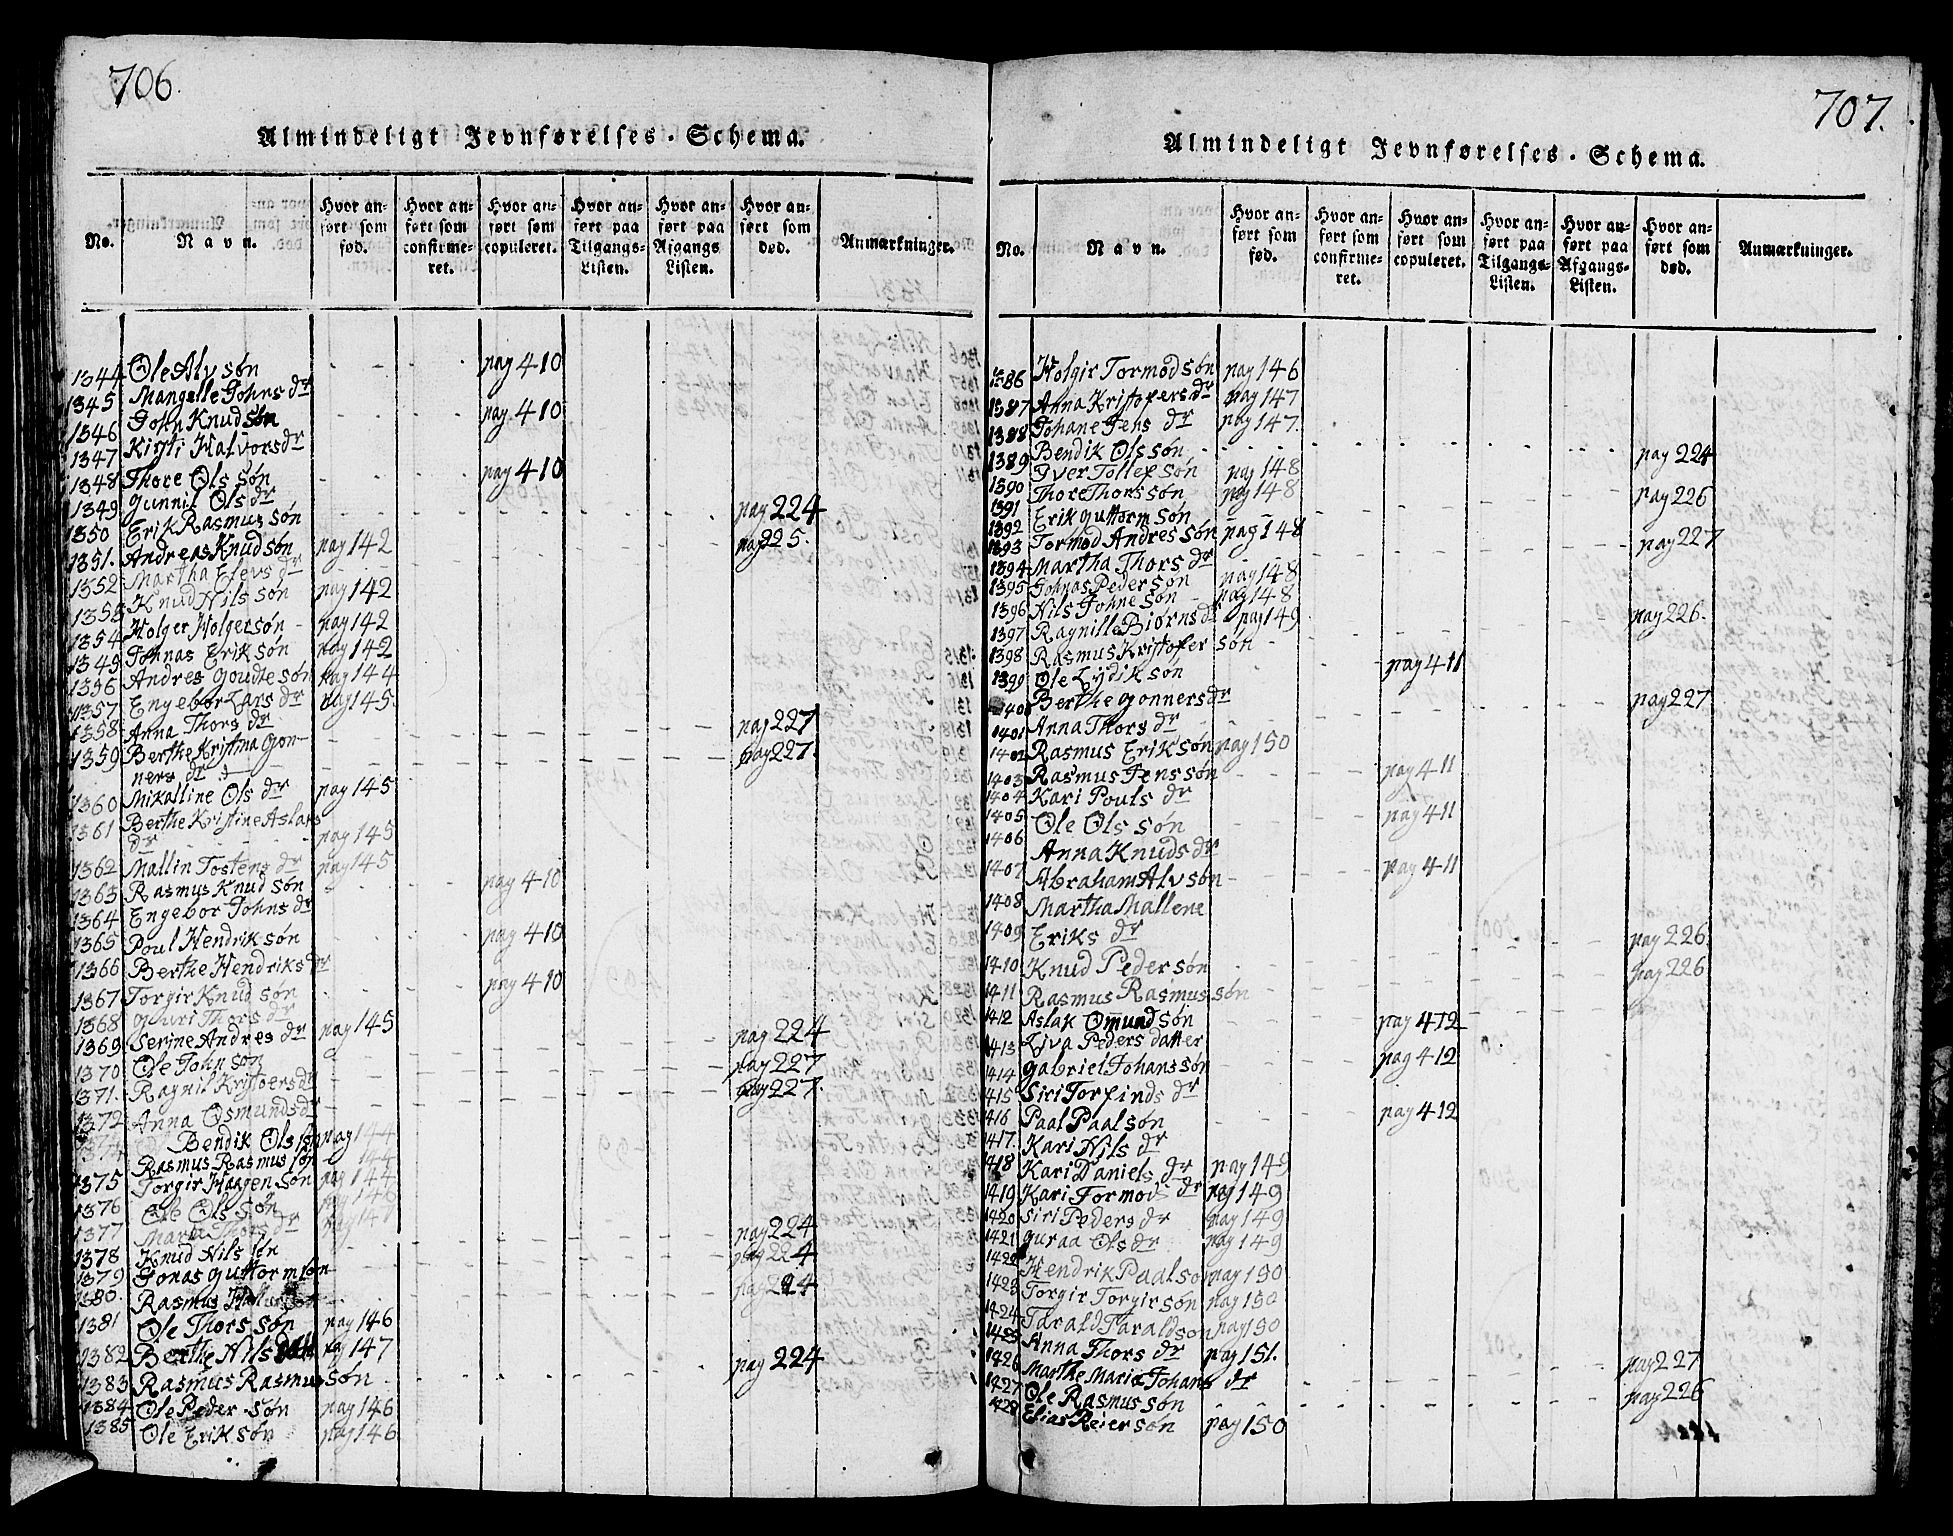 706.
Almindeligt Jevnførelses-Schema.
No.
Navn.
Hvor an-
ført som
fød.
Hvor an-
ført som
confirme-
ret.
Hvor an-
ført som
copuleret.
Hvor an-
ført paa
Tilgangs-
Listen.
Hvor an-
ført paa
Afgangs
Listen.
Hvor an-
ført som
død.
Anmærkninger.
1344 Ole Alvsøn pag 410
1345 Mangelle Johns dr
1346 John Knudsøn pag 410
1347 Kirsti Halvorsdr
1348 Thore Olssøn pag 410
1349 Gunnil Olsdr
1350 Erik Rasmussøn pag 224
1351. Andreas Knudsøn pag 142 pag 225.
1352 Martha Elevs dr
1353 Knud Nilssøn pag 142
1354 Holger Holgersøn pag 142
1349 Johnas Eriksøn pag 142
1356 Andres Goudtesøn pag 144
1357 Engebor Lars dr pag 145.
1358 Anna Thors dr pag 227
1359 Berthe Kristina Gon-
ners dr pag 227.
1360 Mikalline Ols dr pag 145
1361 Berthe Kristine Aslaks
dr pag 145
1362 Mallin Tostens dr pag 145
1363 Rasmus Knudsøn pag 410
1364 Engebor Johns dr
1365 Poul Hendriksøn pag 410
1366 Berthe Hendriks dr
1367 Torgir Knudsøn pag 410
1368 Guri Thors dr
1369 Serine Andres dr pag 145
1370 Ole Johnsøn pag 224
1371. Ragnil Kristoersdr pag 227
1372 Anna Osmundsdr pag 227.
Bendik Olssøn pag 144
Rasmus Rasmussøn 144
1375 Torgir Haagensøn pag 144
1376 Ole Olssøn pag 146
1377 Maria Thors dr pag 147
1378 Knud Nilssøn pag 224
1379 Jonas Guttormsøn pag 224
1380. Rasmus pag 224
1381 Ole Thorssøn pag 146
1382 Berthe Nils pag 147
1383 Rasmus Rasmussøn pag 224
1384 Ole Pedersøn pag 146
1385 Ole Eriksøn pag 146
707.
Almindeligt Jevnførelses-Schema.
No.
Navn.
Hvor an-
ført som
fød.
Hvor an-
ført som
confirme-
ret.
Hvor an-
ført som
copuleret.
Hvor an-
ført paa
Tilgangs-
Listen.
Hvor an-
ført paa
Afgangs-
Listen.
Hvor an-
ført som
død.
Anmærkninger.
1386 Holgir Tormodsøn pag 146
1387 Anna Kristofersdr pag 147
1388 Johane Jens dr pag 147.
1389 Bendik Olssøn pag 224
1390 Iver Tollefsøn pag 148
1391 Thore Thorssøn pag 148 pag 226
1392 Erik Guttormsøn
1393 Tormod Andressøn pag 148 pag 227
1394 Martha Thors dr
1395 Johnas Pedersøn pag 148
1396 Nils Johnesøn pag 148
1397 Ragnille Biørns dr pag 149 pag 226.
1398 Rasmus Kristofersøn
1399 Ole Lydiksøn pag 411
1400 Berthe Gonnersdr pag 227
1401 Anna Thors dr
1402 Rasmus Eriksøn pag 150
1403 Rasmus Jenssøn pag 411
1404 Kari Pouls dr
1405 Ole Olssøn pag 411
1406 Anna Knuds dr
1407 Abraham Alvsøn pag 411
1408 Martha Mallene
1409 Eriks dr pag 226.
1410 Knud Pedersøn pag 226
1411 Rasmus Rasmussøn
1412 Aslak Omundsøn pag 412
1413 Liva Peders datter
1414 Gabriel Johanssøn pag 412
1415 Siri Torfinds dr
1416 Paal Paalsøn pag 412
1417. Kari Nils dr
1418 Kari Daniels dr pag 149
1419 Kari Tormods dr pag 149
1420 Siri Peders dr pag 149
1421 Guraa Olsdr pag 149
1422 Hendrik Paalsøn pag 150
1423 Torgir Torgirsøn pag 150
1424 Tarald Taraldsøn pag 150
1425 Anna Thors dr pag 151.
1426 Marthe Maria Johans dr pag 227
1427 Ole Rasmussøn pag 226
1428 Elias Reiersøn pag 150